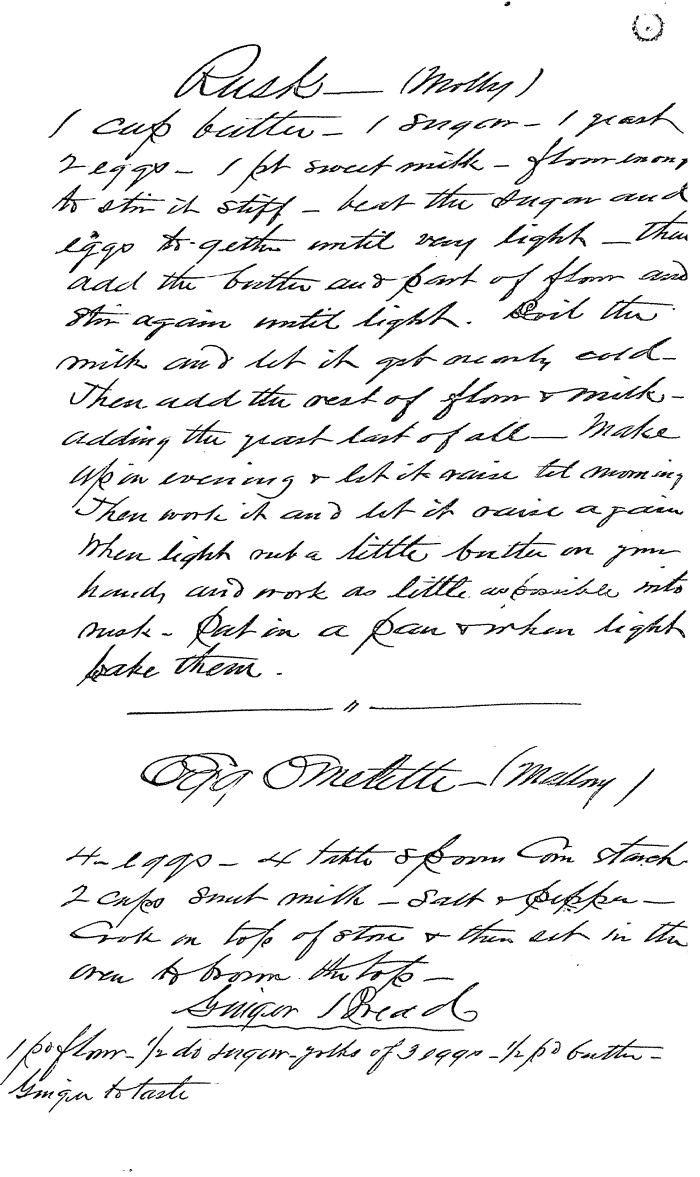 Rusk — (Molly)
1 cup butter – 1 sugar – 1 yeast
2 eggs – 1 pt sweet milk – flour enoug
to stir it stiff – beat the sugar and
eggs to-gether until very light – then
add the butter and part of flour and
stir again until light. Boil the
milk and let it get nearly cold –
Then add the rest of flour & milk –
adding the yeast last of all – Make
up in evening & let it raise til morning
Then work it and let it raise again
When light rub a little butter on your
hands and work as little as possible into
rusk – Put in a pan & when light
bake them.
"
Egg Omelette – (Mallory)
4 – eggs – 4 table spoons Corn starch
2 cups sweet milk – Salt & pepper –
Cook on top of stove & then set in the
oven to brown the top –
Ginger Bread
1 pd flour – 1/2 do sugar – yolks of 3 eggs – 1/2 pd butter –
Ginger to taste